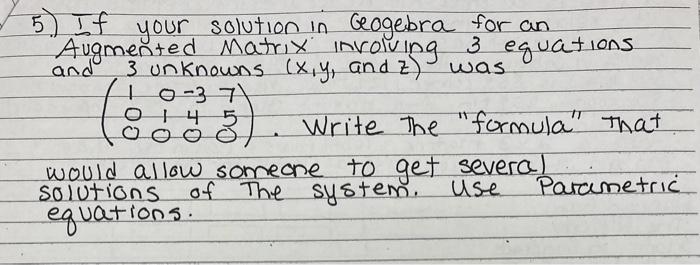 5.) If your solution in Geogebra for an
Augmented Matrix involving 3 equations
and 3 unknowns (x, y, and z) was
1 0 -3 7
0 1 4 5
0 0 0 0 . Write The "formula" That
would allow someone to get several
solutions of The system. Use Parametric
equations.